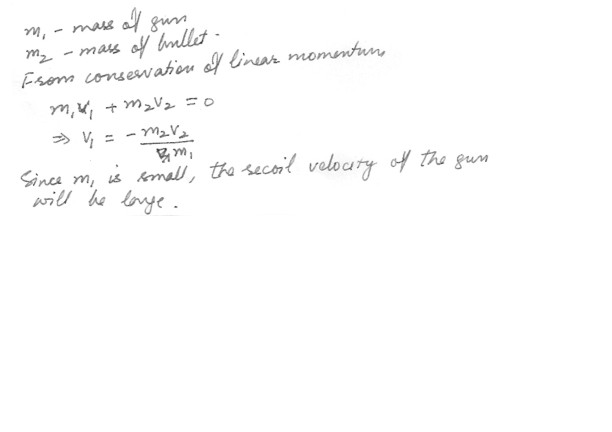 m₁ - mass of gun
m₂ - mass of bullet.
From conservation of linear momentum
m₁v₁ + m₂v₂ = 0
⇒ v₁ = - m₂v₂ / m₁
Since m₁ is small, the recoil velocity of the gun
will be large.